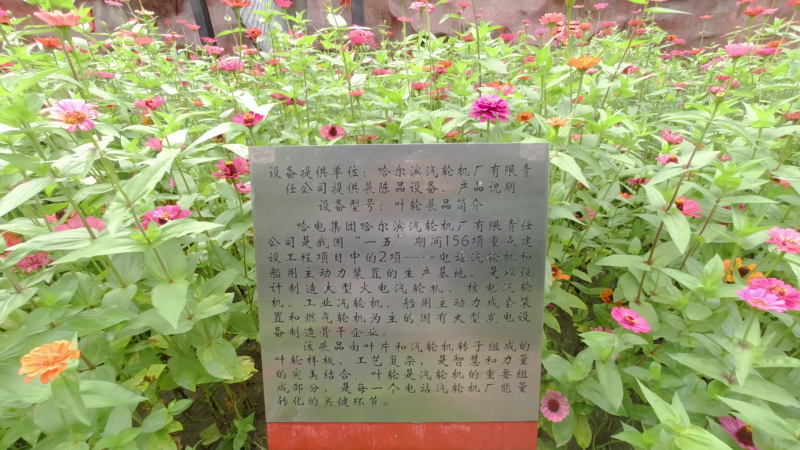 设备提供单位：哈尔滨汽轮机厂有限责
任公司提供展陈品设备，产品说明
设备型号：叶轮展品简介
哈电集团哈尔滨汽轮机厂有限责任
公司是我国“一五”期间156项重点建
设工程项目中的2项----电站汽轮机和
船用主动力装置的生产基地，是以设
计制造大型火电汽轮机、核电汽轮
机、工业汽轮机、船用主动力成套装
置和燃气轮机为主的国有大型发电设
备制造骨干企业。
该展品由叶片和汽轮机转子组成的
叶轮样板，工艺复杂，是智慧和力量
的完美结合，叶轮是汽轮机的重要组
成部分，是每一个电站汽轮机厂能量
转化的关键环节。